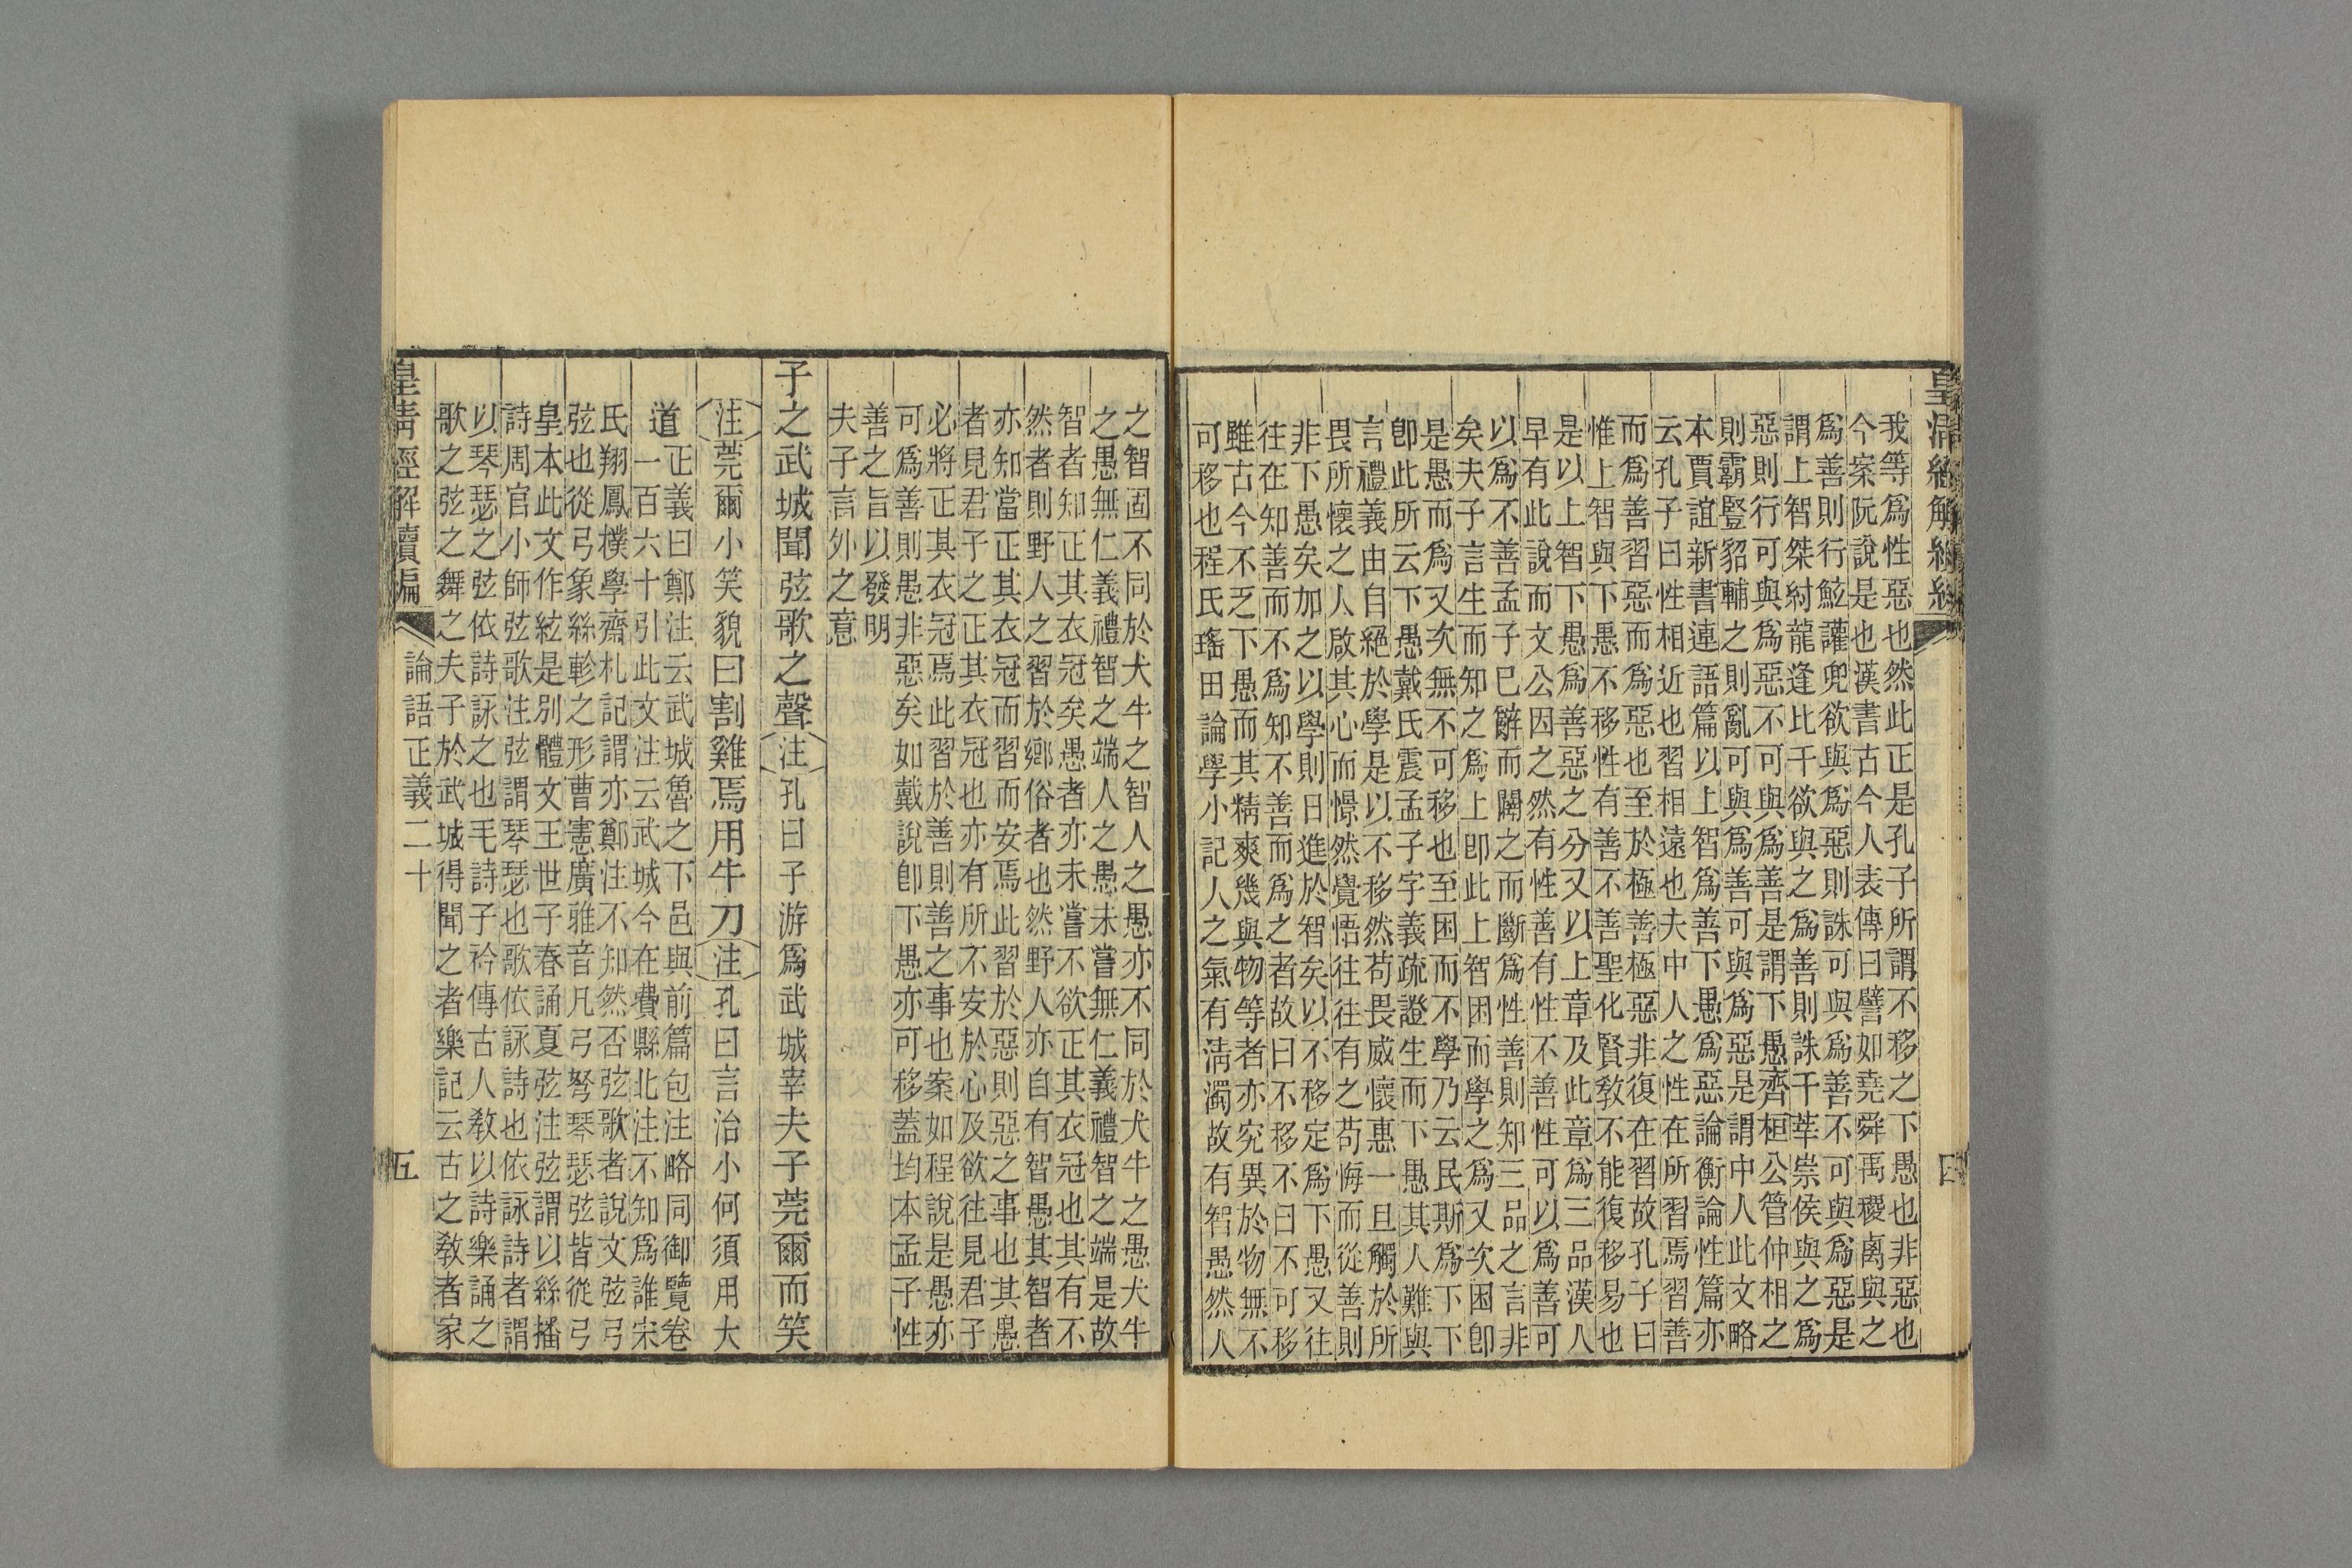 皇清經解續編
四
我等爲性惡也然此正是孔子所謂不移之下愚也非惡也
今案阮說是也漢書古今人表傳曰譬如堯舜禹稷卨與之
爲善則行鮌讙兜欲與爲惡則誅可與爲善不可與爲惡是
謂上智桀紂龍逢比干欲與之爲善則誅干莘崇侯與之爲
惡則行可與爲惡不可與爲善是謂下愚齊桓公管仲相之
則霸豎貂輔之則亂可與爲善可與爲惡是謂中人此文略
本賈誼新書連語篇以上智爲善下愚爲惡論衡論性篇亦
云孔子曰性相近也習相遠也夫中人之性在所習焉習善
而爲善習惡而爲惡也至於極善極惡非復在習故孔子曰
惟上智與下愚不移性有善不善聖化賢敎不能復移易也
是以上智下愚爲善惡之分又以上章及此章爲三品漢人
早有此說而文公因之然有性善有性不善性可以爲善可
以爲不善孟子已辭而闢之而斷爲性善則知三品之言非
矣夫子言生而知之爲上卽此上智困而學之爲又次困卽
是愚而爲又次無不可移也至困而不學乃云民斯爲下下
卽此所云下愚戴氏震孟子字義疏證生而下愚其人難與
言禮義由自絕於學是以不移然苟畏威懷惠一旦觸於所
畏所懷之人啟其心而憬然覺悟往往有之苟悔而從善則
非下愚矣加之以學則日進於智矣以不移定爲下愚又往
往在知善而不爲知不善而爲之者故曰不移不曰不可移
雖古今不乏下愚而其精爽幾與物等者亦究異於物無不
可移也程氏瑤田論學小記人之氣有淸濁故有智愚然人
之智固不同於犬牛之智人之愚亦不同於犬牛之愚犬牛
之愚無仁義禮智之端人之愚未嘗無仁義禮智之端是故
智者知正其衣冠矣愚者亦未嘗不欲正其衣冠也其有不
然者則野人之習於鄉俗者也然野人亦自有智愚其智者
亦知當正其衣冠而習而安焉此習於惡則惡之事也其愚
者見君子之正其衣冠也亦有所不安於心及欲往見君子
必將正其衣冠焉此習於善則善之事也案如程說是愚亦
可爲善則愚非惡矣如戴說卽下愚亦可移蓋均本孟子性
善之旨以發明
夫子言外之意
子之武城聞弦歌之聲注孔曰子游爲武城宰夫子莞爾而笑
注莞爾小笑貌曰割雞焉用牛刀注孔曰言治小何須用大
道
正義曰鄭注云武城魯之下邑與前篇包注略同御覽卷
一百六十引此文注云武城今在費縣北注不知爲誰宋
氏翔鳳樸學齋札記謂亦鄭注不知然否弦歌者說文弦弓
弦也從弓象絲軫之形曹憲廣雅音凡弓弩琴瑟弦皆從弓
皇本此文作絃是別體文王世子春誦夏弦注弦謂以絲播
詩周官小師弦歌注弦謂琴瑟也歌依詠詩也依詠詩者謂
以琴瑟之弦依詩詠之也毛詩子衿傳古人敎以詩樂誦之
歌之弦之舞之夫子於武城得聞之者樂記云古之敎者家
皇清經解續編
論語正義二十
五